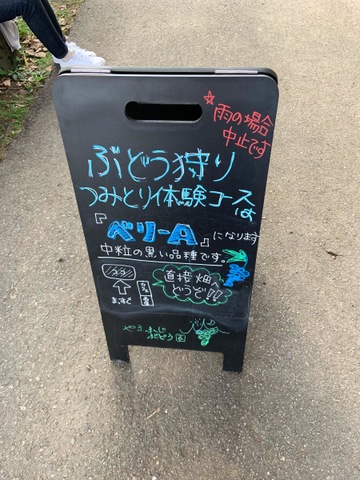 ☆雨の場合
中止です
ぶどう狩り
つみとり体験コースは
『ベリーA』になります
中粒の黒い品種です。
直接畑へ
どうぞ!!
まっすぐ
ぶどう園